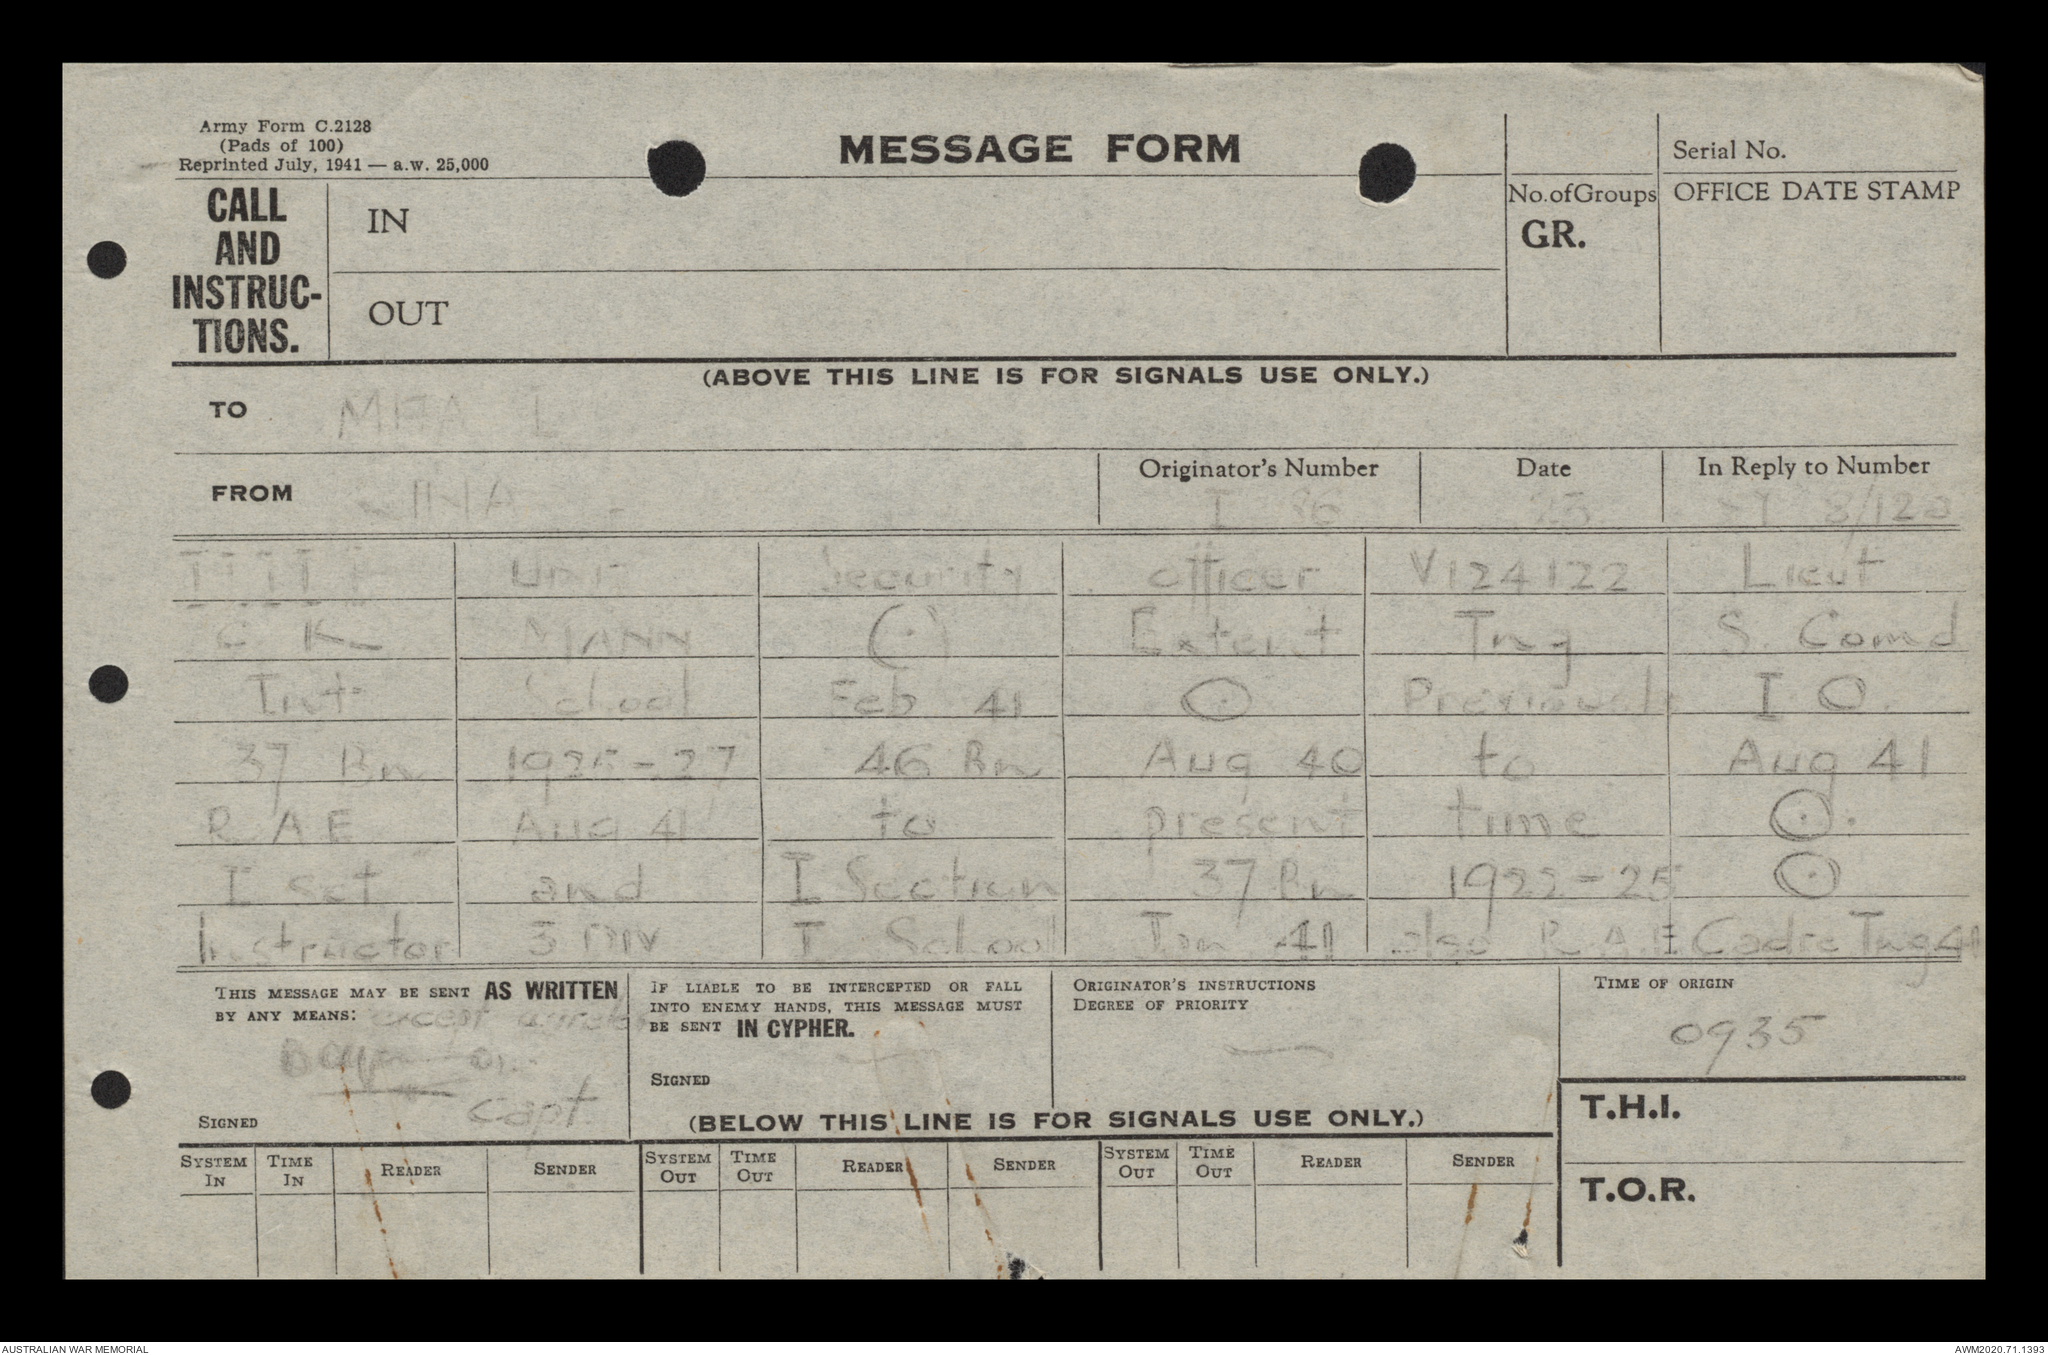 Army Form C.2128
(Pads of 100)
Reprinted July, 1941 — a.w. 25,000
MESSAGE FORM
Serial No.
CALL
AND
INSTRUC-
TIONS.
IN
OUT
No. of Groups
GR.
OFFICE DATE STAMP
(ABOVE THIS LINE IS FOR SIGNALS USE ONLY.)
TO
FROM
Originator's Number Date In Reply to Number
I 8/120
Unit Security officer V124122 Lieut
C K MANN (.) Extent Tng S. Comd
Int School Feb 41 (.) Previously I O
37 Bn 1925-27 46 Bn Aug 40 to Aug 41
R A E Aug 41 to present time (.)
I sct and I Section 37 Bn 1922-25 (.)
Instructor 3 DIV I School Jan 41 also R A E Cadre Tng 41
THIS MESSAGE MAY BE SENT AS WRITTEN
BY ANY MEANS: except
Capt
SIGNED
IF LIABLE TO BE INTERCEPTED OR FALL
INTO ENEMY HANDS, THIS MESSAGE MUST
BE SENT IN CYPHER.
SIGNED
ORIGINATOR'S INSTRUCTIONS
DEGREE OF PRIORITY
TIME OF ORIGIN
0935
(BELOW THIS LINE IS FOR SIGNALS USE ONLY.)
T.H.I.
T.O.R.
SYSTEM IN TIME IN READER SENDER SYSTEM OUT TIME OUT READER SENDER SYSTEM OUT TIME OUT READER SENDER
AUSTRALIAN WAR MEMORIAL
AWM2020.71.1393